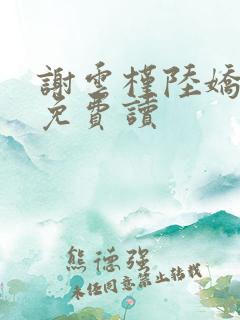 謝雲槿陸嬌
免費讀
熊德强
未经同意禁止转载